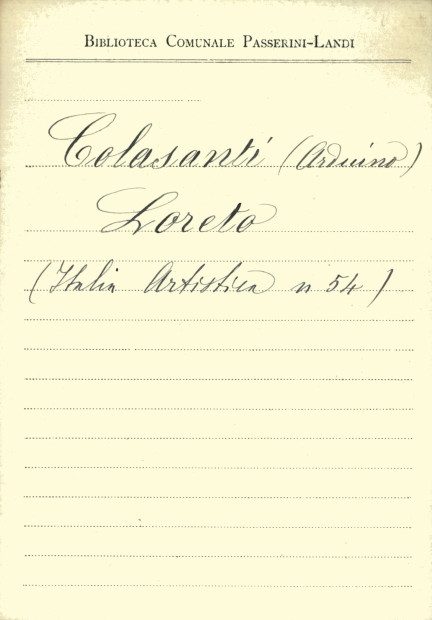 Biblioteca Comunale Passerini-Landi
Colasanti (Arduino)
Loreto
(Italia Artistica n 54)